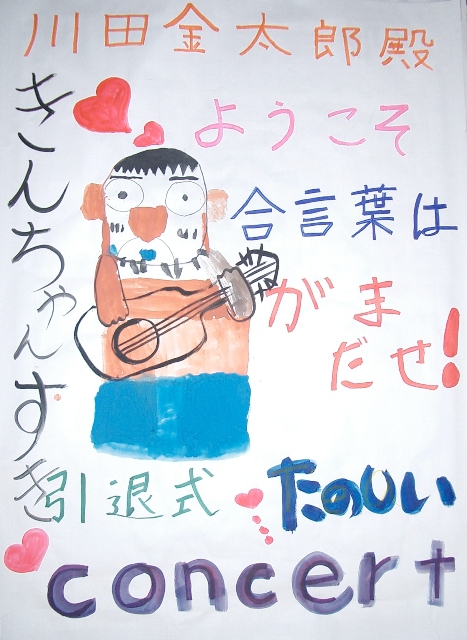 川田金太郎殿
きんちゃんすき
ようこそ
合言葉は
がま
だせ!
引退式
たのしい
concert